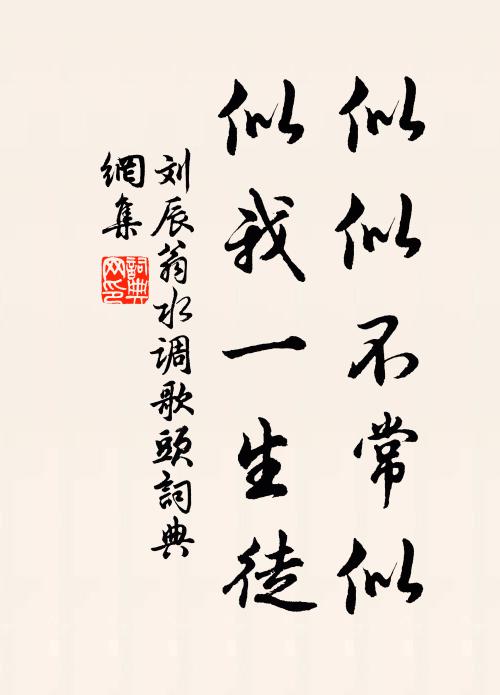 似似不常似
似我一生徒
刘辰翁水调歌頭詞典
網集
詞典
网印